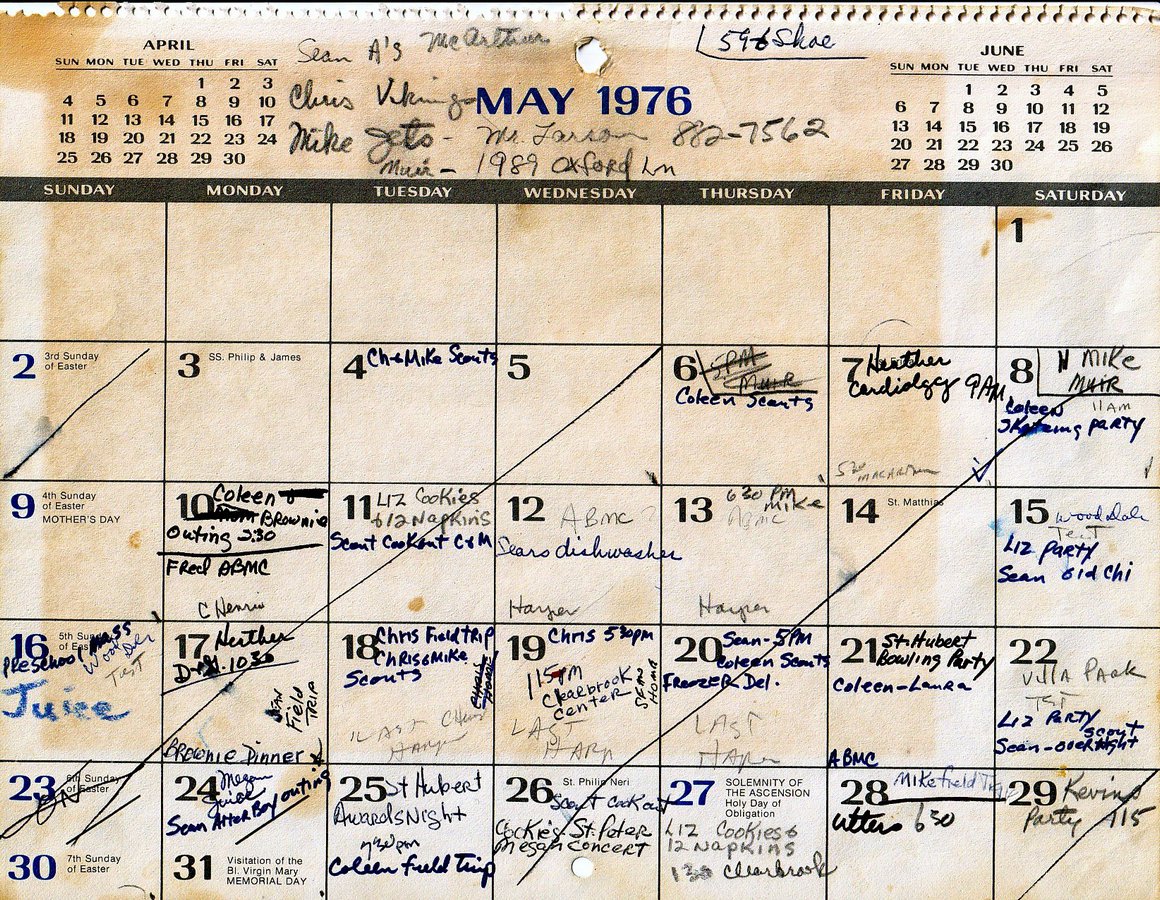 APRIL
SUN MON TUE WED THU FRI SAT
1 2 3
4 5 6 7 8 9 10
11 12 13 14 15 16 17
18 19 20 21 22 23 24
25 26 27 28 29 30
Sean A's McArthur
Chris Vikings
Mike Jets - Mr. Larson 882-7562
Muir - 1989 Oxford Ln
596 Shoe
MAY 1976
JUNE
SUN MON TUE WED THU FRI SAT
1 2 3 4 5
6 7 8 9 10 11 12
13 14 15 16 17 18 19
20 21 22 23 24 25 26
27 28 29 30
SUNDAY MONDAY TUESDAY WEDNESDAY THURSDAY FRIDAY SATURDAY
1
2 3rd Sunday
of Easter
3 SS. Philip & James
4 Ch & Mike Scouts
5
6 5PM
Muir
Coleen Scouts
7 Heather
Cardiology 9 AM
530 MacArthur
8 Mike
Muir
11AM
Coleen
Skateing Party
9 4th Sunday
of Easter
MOTHER'S DAY
10 Coleen &
Mom Brownie
Outing 3:30
Fred ABMC
C Henrie
11 Liz Cookies
& 12 Napkins
Scout Cookout C & M
12 ABMC ?
Sears dishwasher
Harper
13 630 PM
Mike
ABMC
Harper
14 St. Matthias
15 Wood Dale
Test
Liz Party
Sean Old Chi
16 5th Sunday
of Easter
Preschool Mass
Wood Dale
Test
Juice
17 Heather
10:30
Sean
Field
Trip
Brownie Dinner
18 Chris Field Trip
Chris & Mike
Scouts
Last Class
Harper
19 Chris 530pm
115pm
Clearbrook
Center
Sean
Home
Last
Harp
20 Sean - 5 PM
Coleen Scouts
Freezer Del.
Last
Harper
21 St. Hubert
Bowling Party
Coleen - Laura
ABMC
22 Villa Park
Test
Liz Party
Scout
Sean - overnight
23 6th Sunday
of Easter
24 Megan
Juice
Sean Alter Boy outing
25 St Hubert
Awards Night
730pm
Coleen Field Trip
26 St. Philip Neri
Scout Cook out
Cookies St. Peter
Megan Concert
27 SOLEMNITY OF
THE ASCENSION
Holy Day of
Obligation
Liz Cookies &
12 Napkins
130 Clearbrook
28 Mike field Trip
Utters 630
29 Kevins
Party 115
30 7th Sunday
of Easter
31 Visitation of the
Bl. Virgin Mary
MEMORIAL DAY